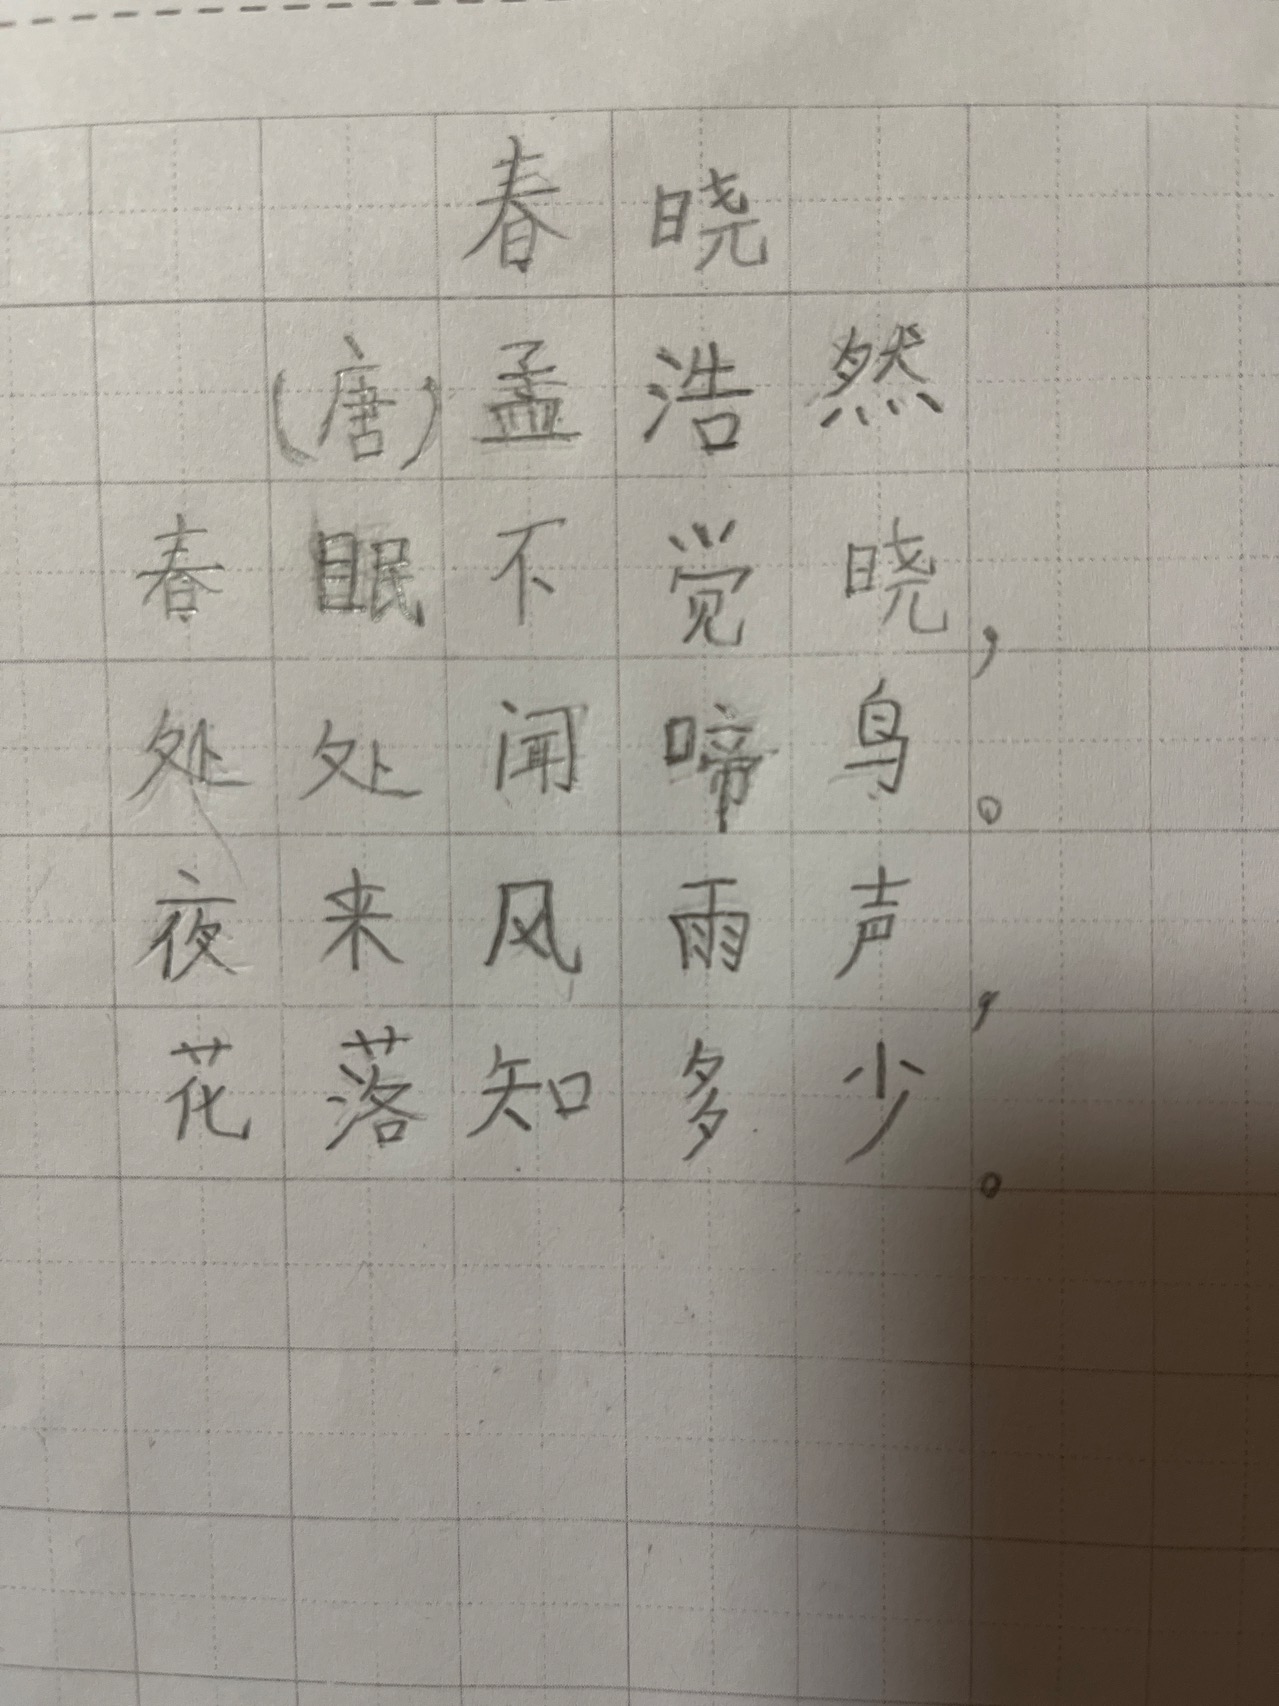 春晓
(唐)孟浩然
春眠不觉晓，
处处闻啼鸟。
夜来风雨声，
花落知多少。